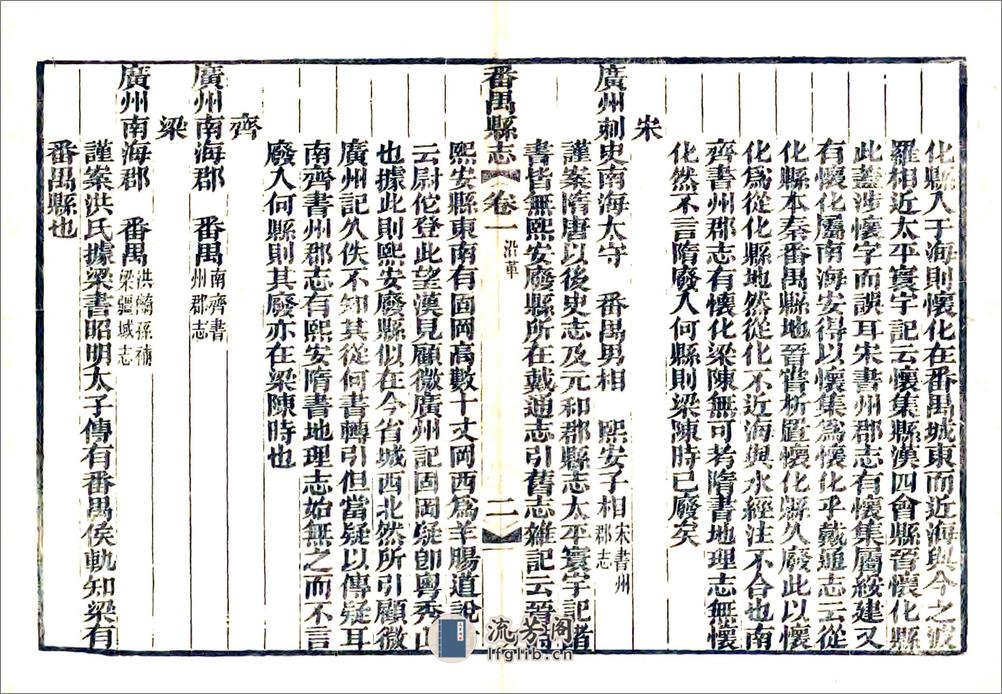 化縣入于海則懷化在番禺城東而近海與今之
羅相近太平寰宇記云懷集縣漢四會縣晉懷化縣
此蓋涉懷字而誤耳宋書州郡志有懷集屬綏建又
有懷化屬南海安得以懷集爲懷化乎戴通志云從
化縣本秦番禺縣地晉嘗析置懷化縣久廢此以懷
化爲從化縣地然從化不近海與水經注不合也南
齊書州郡志有懷化梁陳無可考隋書地理志無懷
化然不言隋廢入何縣則梁陳時已廢矣
宋
廣州刺史南海太守 番禺男相 熙安子相宋書州郡志
謹案隋唐以後史志及元和郡縣志太平寰宇記諸
書皆無熙安廢縣所在戴通志引舊志雜記云晉
番禺縣志 卷一 沿革 二
熙安縣東南有固岡高數十丈岡西爲羊腸道說
云尉佗登此望漢見顧微廣州記固岡疑卽粵秀山
也據此則熙安廢縣似在今省城西北然所引顧微
廣州記久佚不知其從何書轉引但當疑以傳疑耳
南齊書州郡志有熙安隋書地理志始無之而不言
廢入何縣則其廢亦在梁陳時也
齊
廣州南海郡 番禺南齊書州郡志
梁
廣州南海郡 番禺洪齮孫補梁疆域志
謹案洪氏據梁書昭明太子傳有番禺侯軌知梁有
番禺縣也
流芳阁
lfglib.cn